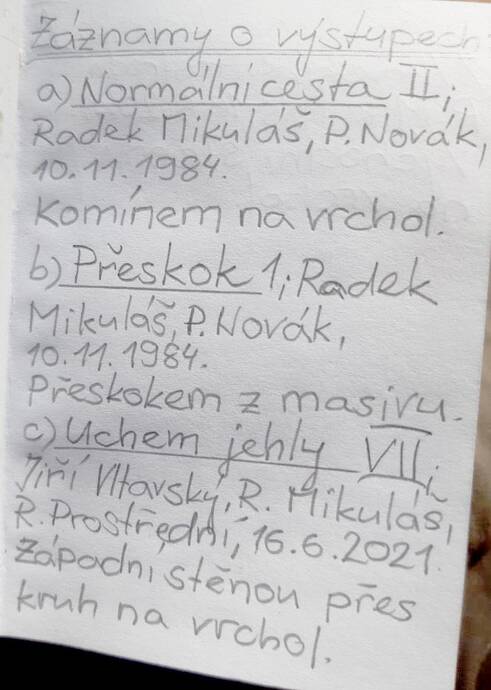 Záznamy o výstupech:
a) Normální cesta II;
Radek Mikuláš, P. Novák,
10.11.1984.
Komínem na vrchol.
b) Přeskok 1; Radek
Mikuláš, P. Novák,
10.11.1984.
Přeskokem z masivu.
c) Uchem jehly VII;
Jiří Vltavský, R. Mikuláš,
R. Prostřední, 16.6.2021.
Západní stěnou přes
kruh na vrchol.